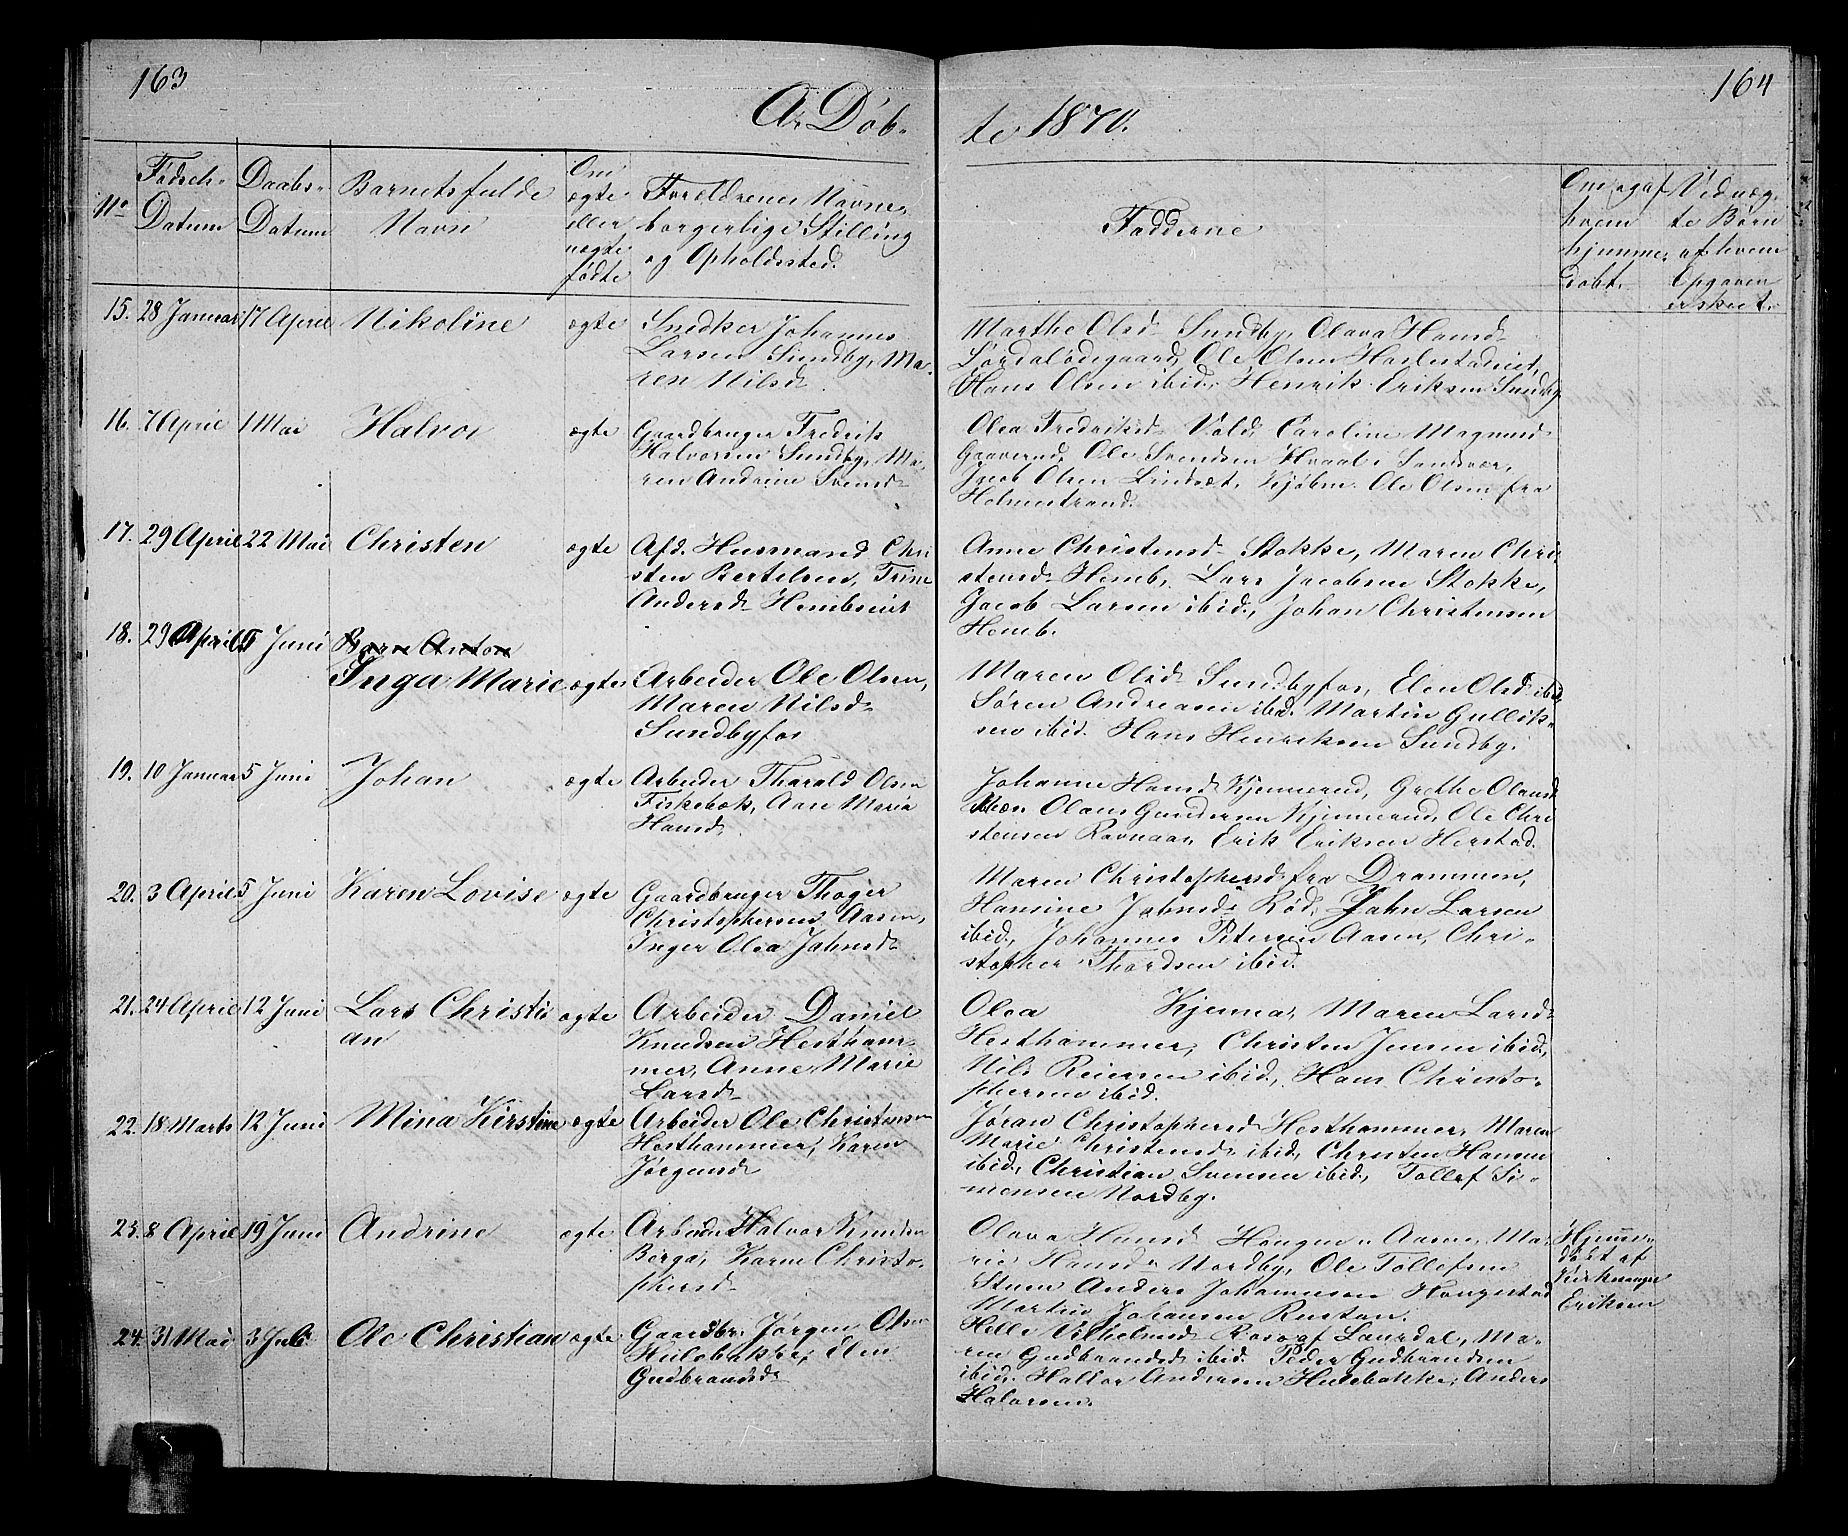 163
164
A. Döb-
te 1870.
No
Födsels-
Datum
Daabs-
Datum
Barnets fulde
Navn
Om
ægte
eller
uægte
fødte
Forældrenes Navne,
borgerlige Stilling
og Opholdssted.
Fadderne
Om og af
hvem
hjemme-
döbt.
Ved uæg-
te Børn
af hvem
Opgaven
er skeet.
15. 28 Januar 17 April Nikoline ægte
Snedker Johannes
Larsen Sundby, Ma-
ren Nilsd.
Marthe Olsd. Sundby, Olava Hansd.
Ole Olsen
Hans Olsen ibid, Henrik Eriksen Sundby
16. 7 April 1 Mai Halvor ægte
Gaardbruger Fredrik
Halvorsen Sundby, Ma-
ren Andrine Svensd.
Olea Fredriksd. Vold, Caroline Magnusd.
Gaaserud, Ole Svendsen Hvaal i Sandsvær,
Jacob Olsen Lindsæt, Kjøbm. Ole Olsen fra
Holmestrand.
17. 29 April 22 Mai Christen ægte
Afd. Husmand Chri
sten Bertelsen, Trine
Andersd. Hembseiet
Anne Christensd. Stokke, Maren Chri-
stensd. Hemb, Lars Jacobsen Stokke,
Jacob Larsen ibid, Johan Christensen
Hemb.
18. 29 April 5 Juni Barn Anton
Inga Marie ægte
Arbeider Ole Olsen,
Maren Nilsd.
Sundbyfos
Maren Olsd. Sundbyfos, Elen Olsd. ibid
Søren Andreasen ibid. Martin Gullik-
sen ibid. Hans Henriksen Sundby.
19. 10 Januar 5 Juni Johan ægte
Arbeider Tharald Olsen
Fiskebæk, Ane Maria
Hansd.
Johanne Hansd. Kjennerud, Grethe Olausd.
Olaus Gundersen Kjennerud, Ole Chri
stensen Ravnaas, Erik Eriksen Herstad.
20. 3 April 5 Juni Karen Lovise ægte
Gaardbruger Thoger
Christophersen Aasen,
Inger Olea Jahnsd.
Maren Christophersd. fra Drammen,
Hansine Jahnsd. Rød, Jahn Larsen
ibid, Johannes Petersen Aasen, Chri-
stopher Thordsen ibid.
21. 24 April 12 Juni Lars Christi
an ægte
Arbeider Daniel
Knudsen Hestham-
mer, Anne Marie
Larsd.
Olea Kjennas, Maren Larsd.
Hesthammer, Christen Jensen ibid,
Nils Reiersen ibid, Hans Christo-
phersen ibid.
22. 18 Marts 12 Juni Mina Kirstine ægte
Arbeider Ole Christensen
Hesthammer, Karen
Jørgensd.
Jøran Christophersd. Hesthammer, Maren
Marie Christensd. ibid, Christen Hansen
ibid, Christian Svensen ibid, Tollef Si-
mensen Nordby.
23. 8 April 19 Juni Andrine ægte
Arbeider Halvor Knudsen
Berga, Karen Christo-
phersd.
Olava Hansd. Haugen u. Aasen, Ma-
rie Hansd. Nordby, Ole Tollefsen
Steen Anders Johannesen Haugestad
Martin Johansen Rustan.
Hjemme-
döbt af
Kirkesanger
Eriksen
24. 31 Mai 3 Juli Ole Christian ægte
Gaardbr. Jørgen Olsen
Hulebakke, Elen
Gudbrandsd.
Helle Vilhelmsd. Laurdal, Ma-
ren Gudbrandsd. ibid. Peder Gudbrandsen
ibid. Halvor Andersen Hulebakke, Anders
Halvorsen.